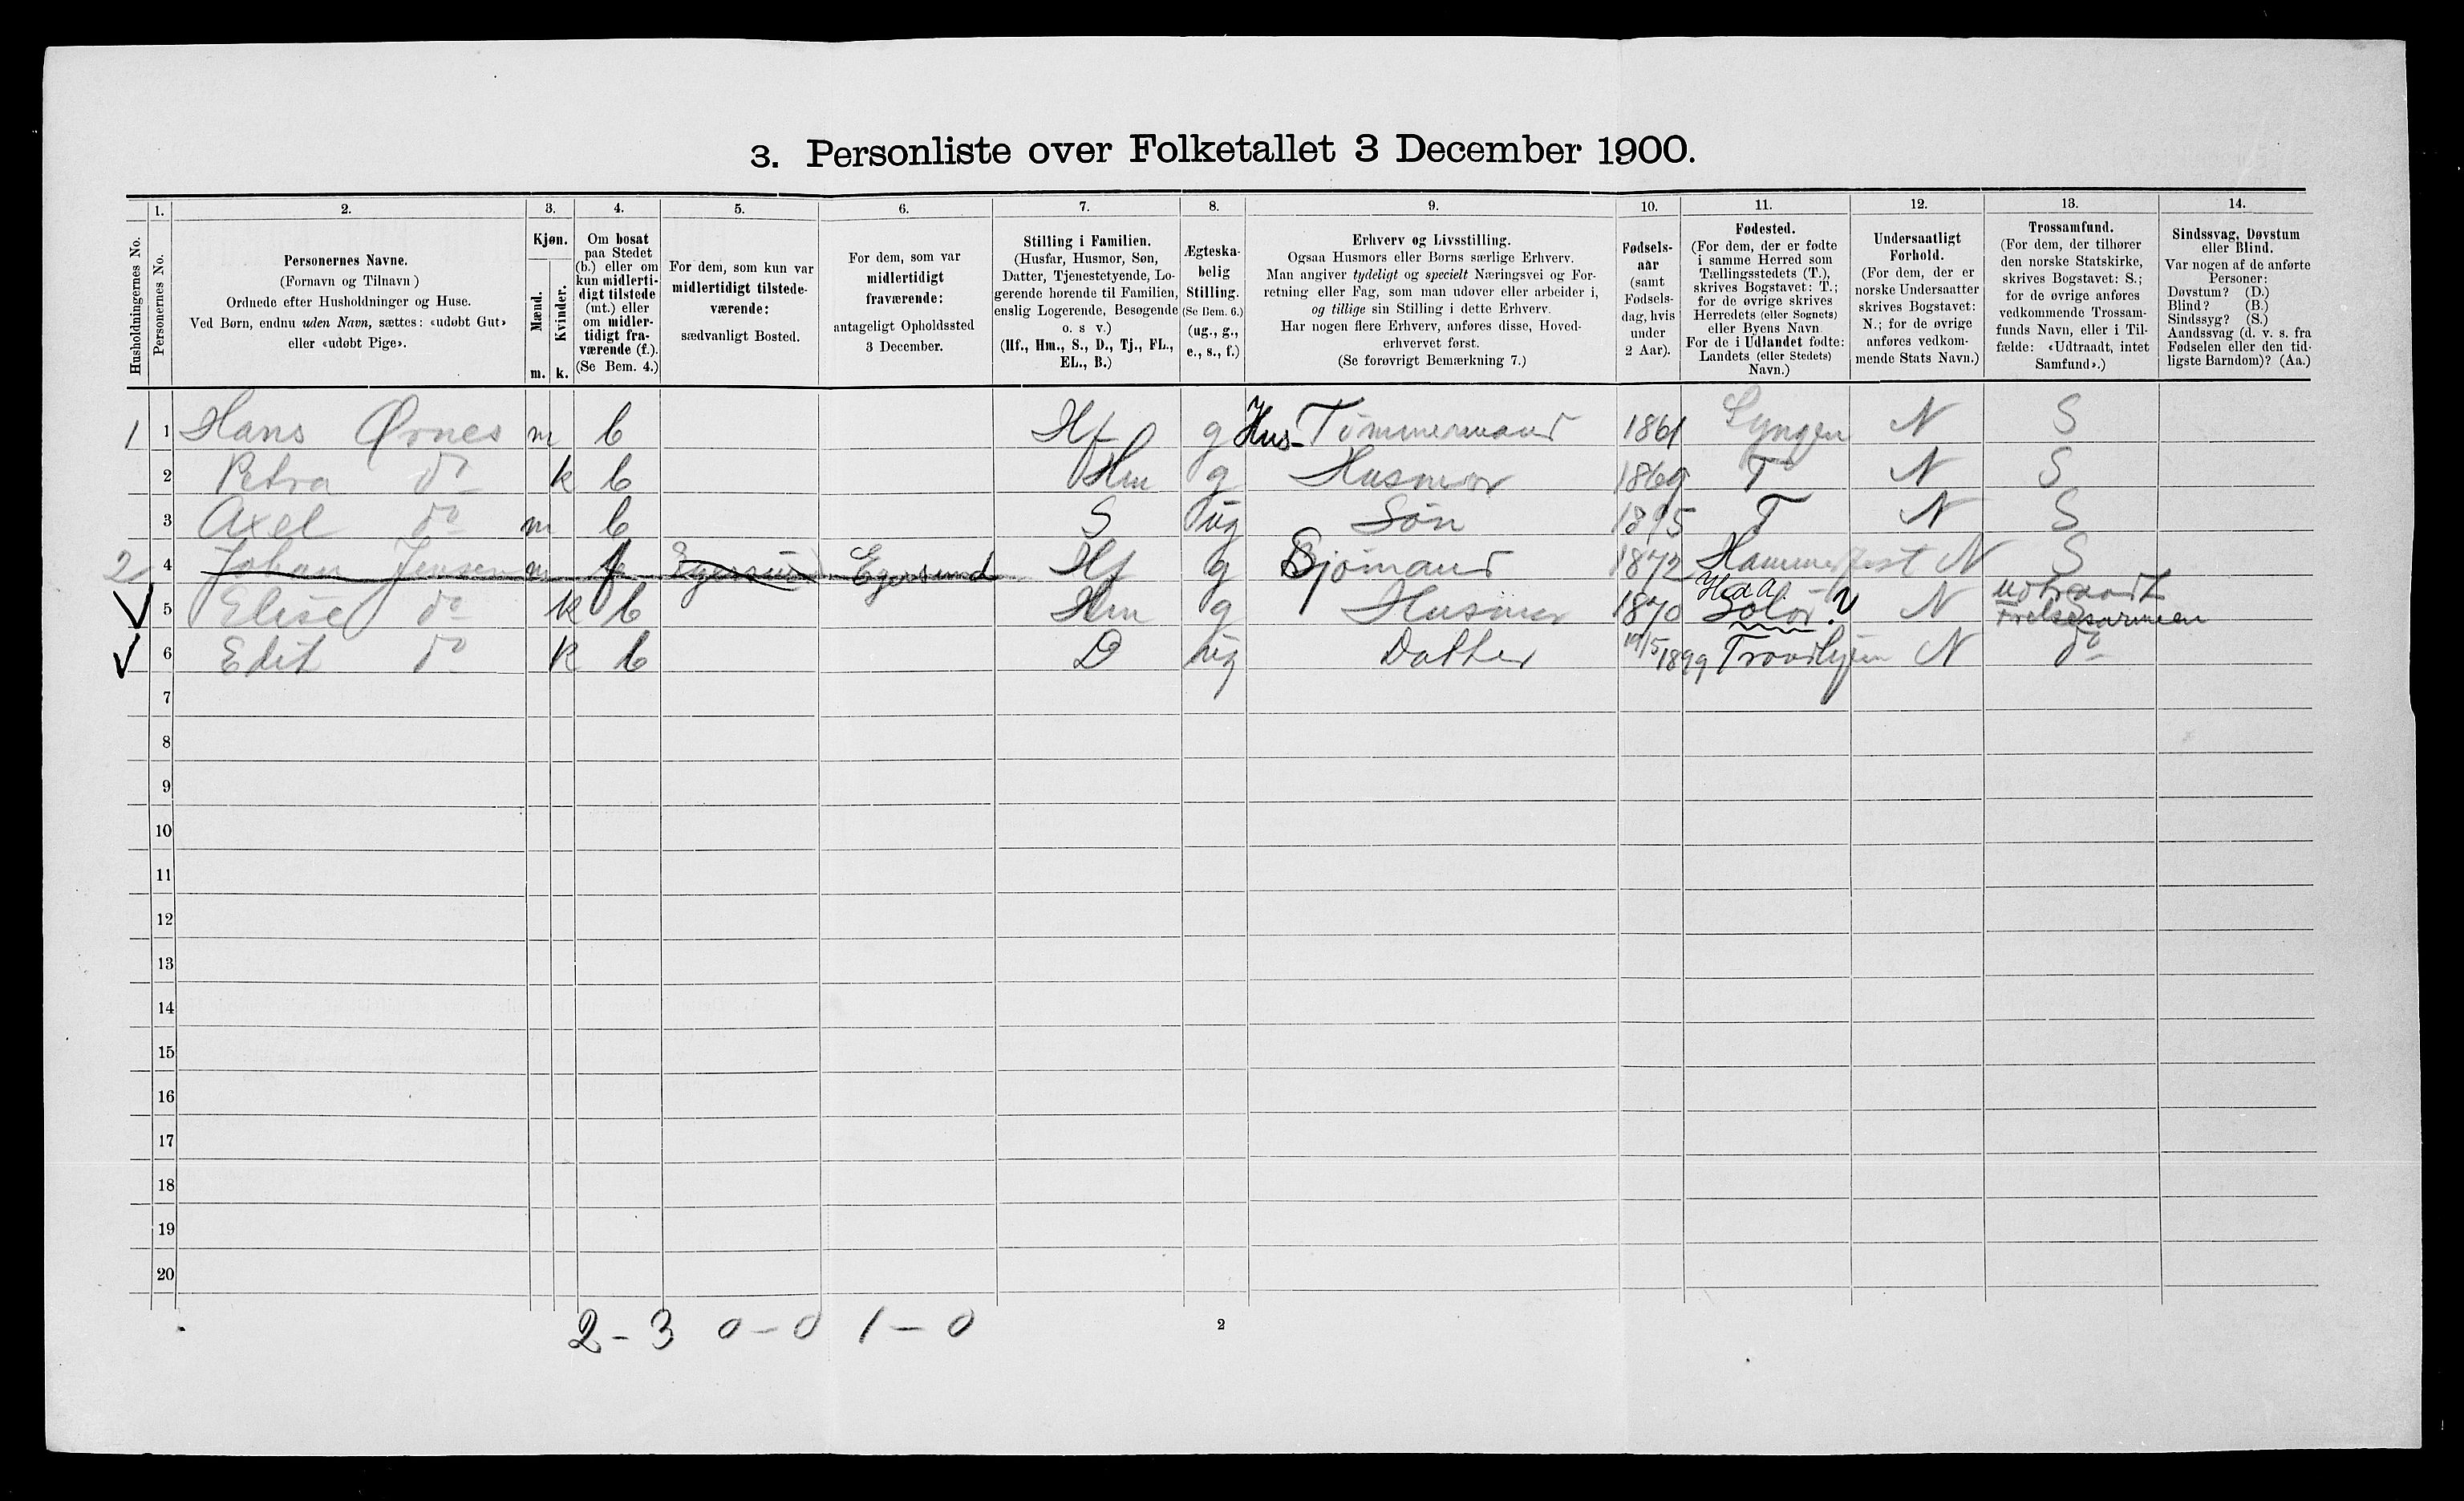 3. Personliste over Folketallet 3 December 1900.
1. 2. 3. 4. 5. 6. 7. 8. 9. 10. 11. 12. 13. 14.
Husholdningernes No.
Personernes No.
Personernes Navne.
(Fornavn og Tilnavn )
Ordnede efter Husholdninger og Huse.
Ved Børn, endnu uden Navn, sættes: «udøbt Gut»
eller «udøbt Pige».
Kjøn.
Mænd.
Kvinder.
m. k.
Om bosat
paa Stedet
(b.) eller om
kun midlerti-
digt tilstede
(mt.) eller
om midler-
tidigt fra-
værende (f.).
(Se Bem. 4.)
For dem, som kun var
midlertidigt tilstede-
værende:
sædvanligt Bosted.
For dem, som var
midlertidigt
fraværende:
antageligt Opholdssted
3 December.
Stilling i Familien.
(Husfar, Husmor, Søn,
Datter, Tjenestetyende, Lo-
gerende hørende til Familien,
enslig Logerende, Besøgende
o. s v.)
(Hf., Hm., S., D., Tj., FL.,
EL., B.)
Ægteska-
belig
Stilling.
(Se Bem. 6.)
(ug., g.,
e., s., f.)
Erhverv og Livsstilling.
Ogsaa Husmors eller Børns særlige Erhverv.
Man angiver tydeligt og specielt Næringsvei og For-
retning eller Fag, som man udøver eller arbeider i,
og tillige sin Stilling i dette Erhverv.
Har nogen flere Erhverv, anføres disse, Hoved-
erhvervet først.
(Se forøvrigt Bemærkning 7.)
Fødsels-
aar
(samt
Fødsels-
dag, hvis
under
2 Aar).
Fødested.
(For dem, der er fødte
i samme Herred som
Tællingsstedets (T.),
skrives Bogstavet: T.;
for de øvrige skrives
Herredets (eller Sognets)
eller Byens Navn.
For de i Udlandet fødte:
Landets (eller Stedets)
Navn.)
Undersaatligt
Forhold.
(For dem, der er
norske Undersaatter
skrives Bogstavet:
N.; for de øvrige
anføres vedkom-
mende Stats Navn.)
Trossamfund.
(For dem, der tilhører
den norske Statskirke,
skrives Bogstavet: S.;
for de øvrige anføres
vedkommende Trossam-
funds Navn, eller i Til-
fælde: «Udtraadt, intet
Samfund».)
Sindssvag, Døvstum
eller Blind.
Var nogen af de anførte
Personer:
Døvstum? (D.)
Blind? (B.)
Sindssyg? (S.)
Aandssvag (d. v. s. fra
Fødselen eller den tid-
ligste Barndom)? (Aa.)
1 1 Hans Ørnes m b Hf g Hus- Tømmermand 1861 Lyngen N S
2 Petra do k b Hm g Husmor 1869 T N S
3 Axel do m b S ug Søn 1895 T N S
2 4 Johan Jensen m f Egersund Egersund Hf g Sjømand 1872 Hammerfest N S
5 Elise do k b Hm g Husmor 1870 Solør ? N udtraadt
Frelsesarmeen
6 Edit do k b D ug Datter 1899 Trondhjem N do
7
8
9
10
11
12
13
14
15
16
17
18
19
20
2 - 3 0 - 0 1 - 0
2